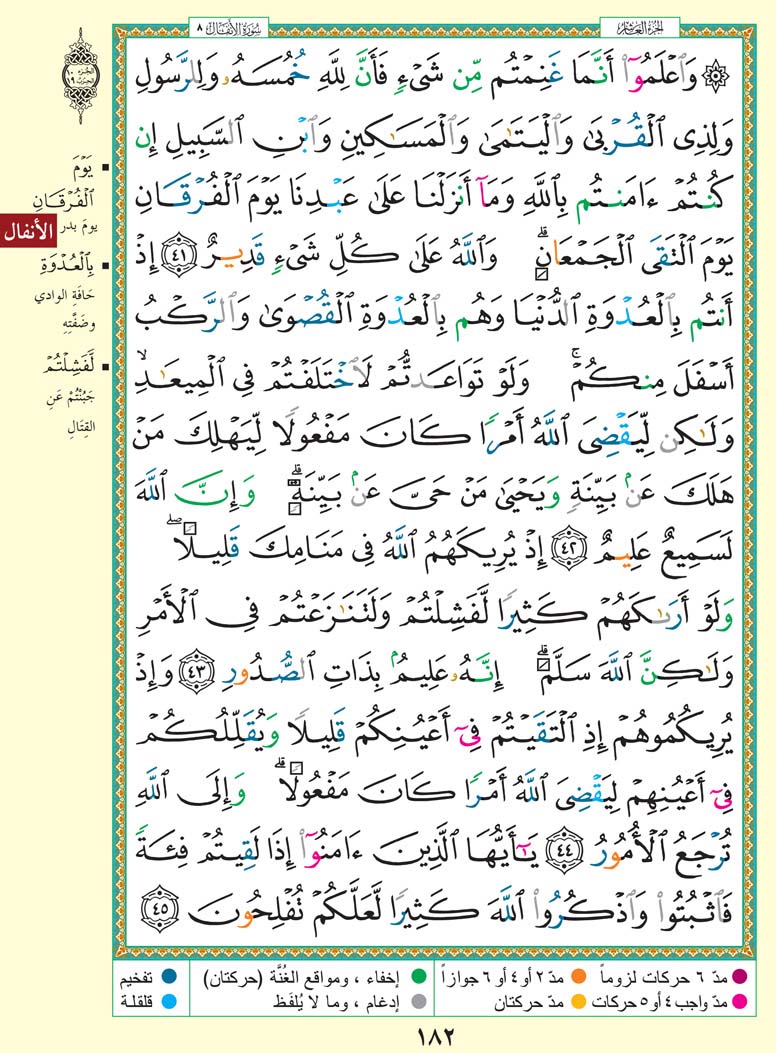 الجزء العاشر
سورة الأنفال ٨
۞ وَٱعۡلَمُوٓاْ أَنَّمَا غَنِمۡتُم مِّن شَيۡءٖ فَأَنَّ لِلَّهِ خُمُسَهُۥ وَلِلرَّسُولِ
وَلِذِي ٱلۡقُرۡبَىٰ وَٱلۡيَتَٰمَىٰ وَٱلۡمَسَٰكِينِ وَٱبۡنِ ٱلسَّبِيلِ إِن
كُنتُمۡ ءَامَنتُم بِٱللَّهِ وَمَآ أَنزَلۡنَا عَلَىٰ عَبۡدِنَا يَوۡمَ ٱلۡفُرۡقَانِ
يَوۡمَ ٱلۡتَقَى ٱلۡجَمۡعَانِۗ وَٱللَّهُ عَلَىٰ كُلِّ شَيۡءٖ قَدِيرٌ ٤١ إِذۡ
أَنتُم بِٱلۡعُدۡوَةِ ٱلدُّنۡيَا وَهُم بِٱلۡعُدۡوَةِ ٱلۡقُصۡوَىٰ وَٱلرَّكۡبُ
أَسۡفَلَ مِنكُمۡۚ وَلَوۡ تَوَاعَدتُّمۡ لَٱخۡتَلَفۡتُمۡ فِي ٱلۡمِيعَٰدِۙ
وَلَٰكِن لِّيَقۡضِيَ ٱللَّهُ أَمۡرٗا كَانَ مَفۡعُولٗا لِّيَهۡلِكَ مَنۡ
هَلَكَ عَنۢ بَيِّنَةٖ وَيَحۡيَىٰ مَنۡ حَيَّ عَنۢ بَيِّنَةٖۗ وَإِنَّ ٱللَّهَ
لَسَمِيعٌ عَلِيمٌ ٤٢ إِذۡ يُرِيكَهُمُ ٱللَّهُ فِي مَنَامِكَ قَلِيلٗاۖ
وَلَوۡ أَرَىٰكَهُمۡ كَثِيرٗا لَّفَشِلۡتُمۡ وَلَتَنَٰزَعۡتُمۡ فِي ٱلۡأَمۡرِ
وَلَٰكِنَّ ٱللَّهَ سَلَّمَۗ إِنَّهُۥ عَلِيمُۢ بِذَاتِ ٱلصُّدُورِ ٤٣ وَإِذۡ
يُرِيكُمُوهُمۡ إِذِ ٱلۡتَقَيۡتُمۡ فِيٓ أَعۡيُنِكُمۡ قَلِيلٗا وَيُقَلِّلُكُمۡ
فِيٓ أَعۡيُنِهِمۡ لِيَقۡضِيَ ٱللَّهُ أَمۡرٗا كَانَ مَفۡعُولٗاۗ وَإِلَى ٱللَّهِ
تُرۡجَعُ ٱلۡأُمُورُ ٤٤ يَٰٓأَيُّهَا ٱلَّذِينَ ءَامَنُوٓاْ إِذَا لَقِيتُمۡ فِئَةٗ
فَٱثۡبُتُواْ وَٱذۡكُرُواْ ٱللَّهَ كَثِيرٗا لَّعَلَّكُمۡ تُفۡلِحُونَ ٤٥
الجزء
١٠
الحزب
١٩
يَوۡمَ
ٱلۡفُرۡقَانِ
يومَ بدر
الأنفال
بِٱلۡعُدۡوَةِ
حَافَةِ الوادي
وضَفَّتِه
لَّفَشِلۡتُمۡ
جَبُنْتُمْ عَنِ
القِتَالِ
مدّ ٦ حركات لزوماً
مدّ ٢ أو ٤ أو ٦ جوازاً
إخفاء ، ومواقع الغُنَّة (حركتان)
تفخيم
مدّ واجب ٤ أو ٥ حركات
مدّ حركتان
إدغام ، وما لا يُلفَظ
قلقلة
١٨٢